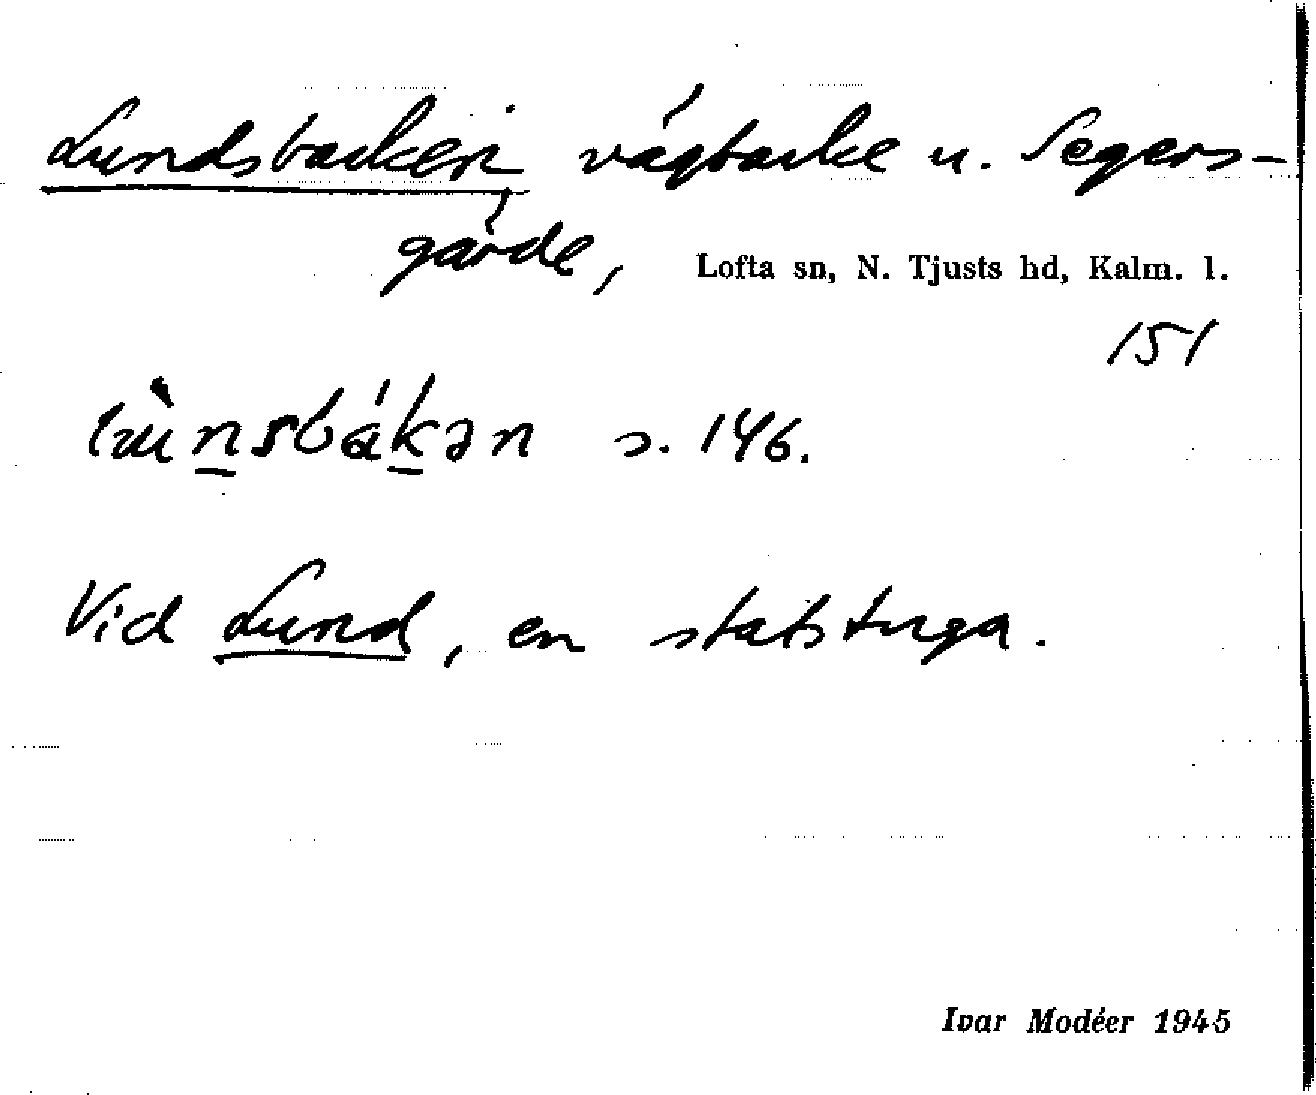 Lundsbacken vägbacke u. Segers-
gärde,
Lofta sn, N. Tjusts hd, Kalm. l.
151
s. 146.
Vid Lund, en statstuga.
Ivar Modéer 1945